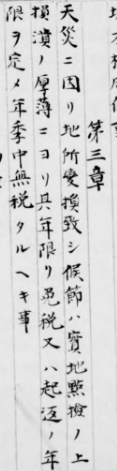 第三章
天災ニ因リ地所変換致シ候節ハ實地點撿ノ上
損潰ノ厚薄ニヨリ其年限リ免税又ハ起返ノ年
限ヲ定メ年季中無税タルヘキ事